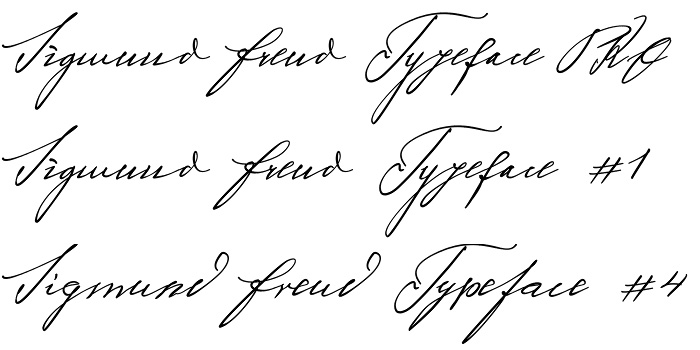 Sigmund Freud Typeface PRO
Sigmund Freud Typeface #1
Sigmund Freud Typeface #4